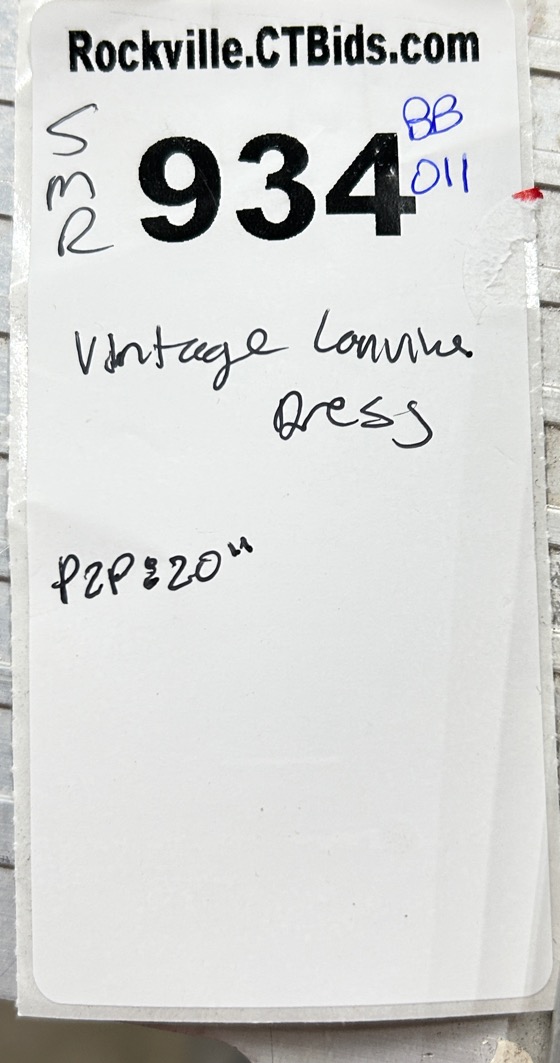 Rockville.CTBids.com
S
M
R
934
BB
011
Vintage Lanvin
Dress
P2P:20"